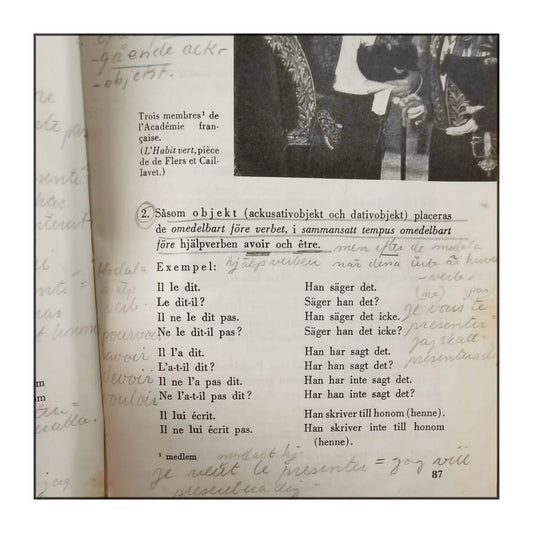 -gående ack-
-objekt.
Trois membres¹ de
l'Académie fran-
çaise.
(L'Habit vert, pièce
de de Flers et Cail-
lavet.)
2. Såsom objekt (ackusativobjekt och dativobjekt) placeras
de omedelbart före verbet, i sammansatt tempus omedelbart
före hjälpverben avoir och être. men efter de modala
hjälpverben när dessa
verb.
Exempel:
Il le dit. Han säger det.
Le dit-il? Säger han det?
Il ne le dit pas. Han säger det icke.
Ne le dit-il pas? Säger han det icke?
Il l'a dit. Han har sagt det.
L'a-t-il dit? Har han sagt det?
Il ne l'a pas dit. Han har inte sagt det.
Ne l'a-t-il pas dit? Har han inte sagt det?
Il lui écrit. Han skriver till honom (henne).
Il ne lui écrit pas. Han skriver inte till honom
(henne).
modala
hjälp
verb.
pouvoir
savoir
devoir
vouloir
(ne) pas
je vais te
presenter=
jag skall
presentera dig
¹ medlem
modalt hj.
je veut te presenter = jag vill
presentera dig.
87